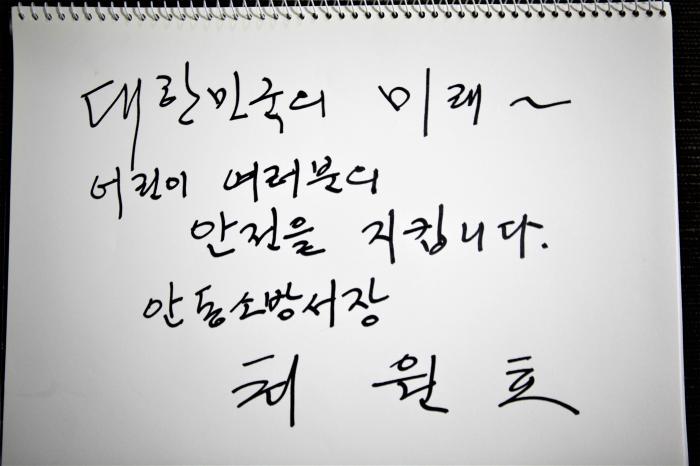 대한민국의 미래~
어린이 여러분의
안전을 지킵니다.
안동소방서장
최 원 호